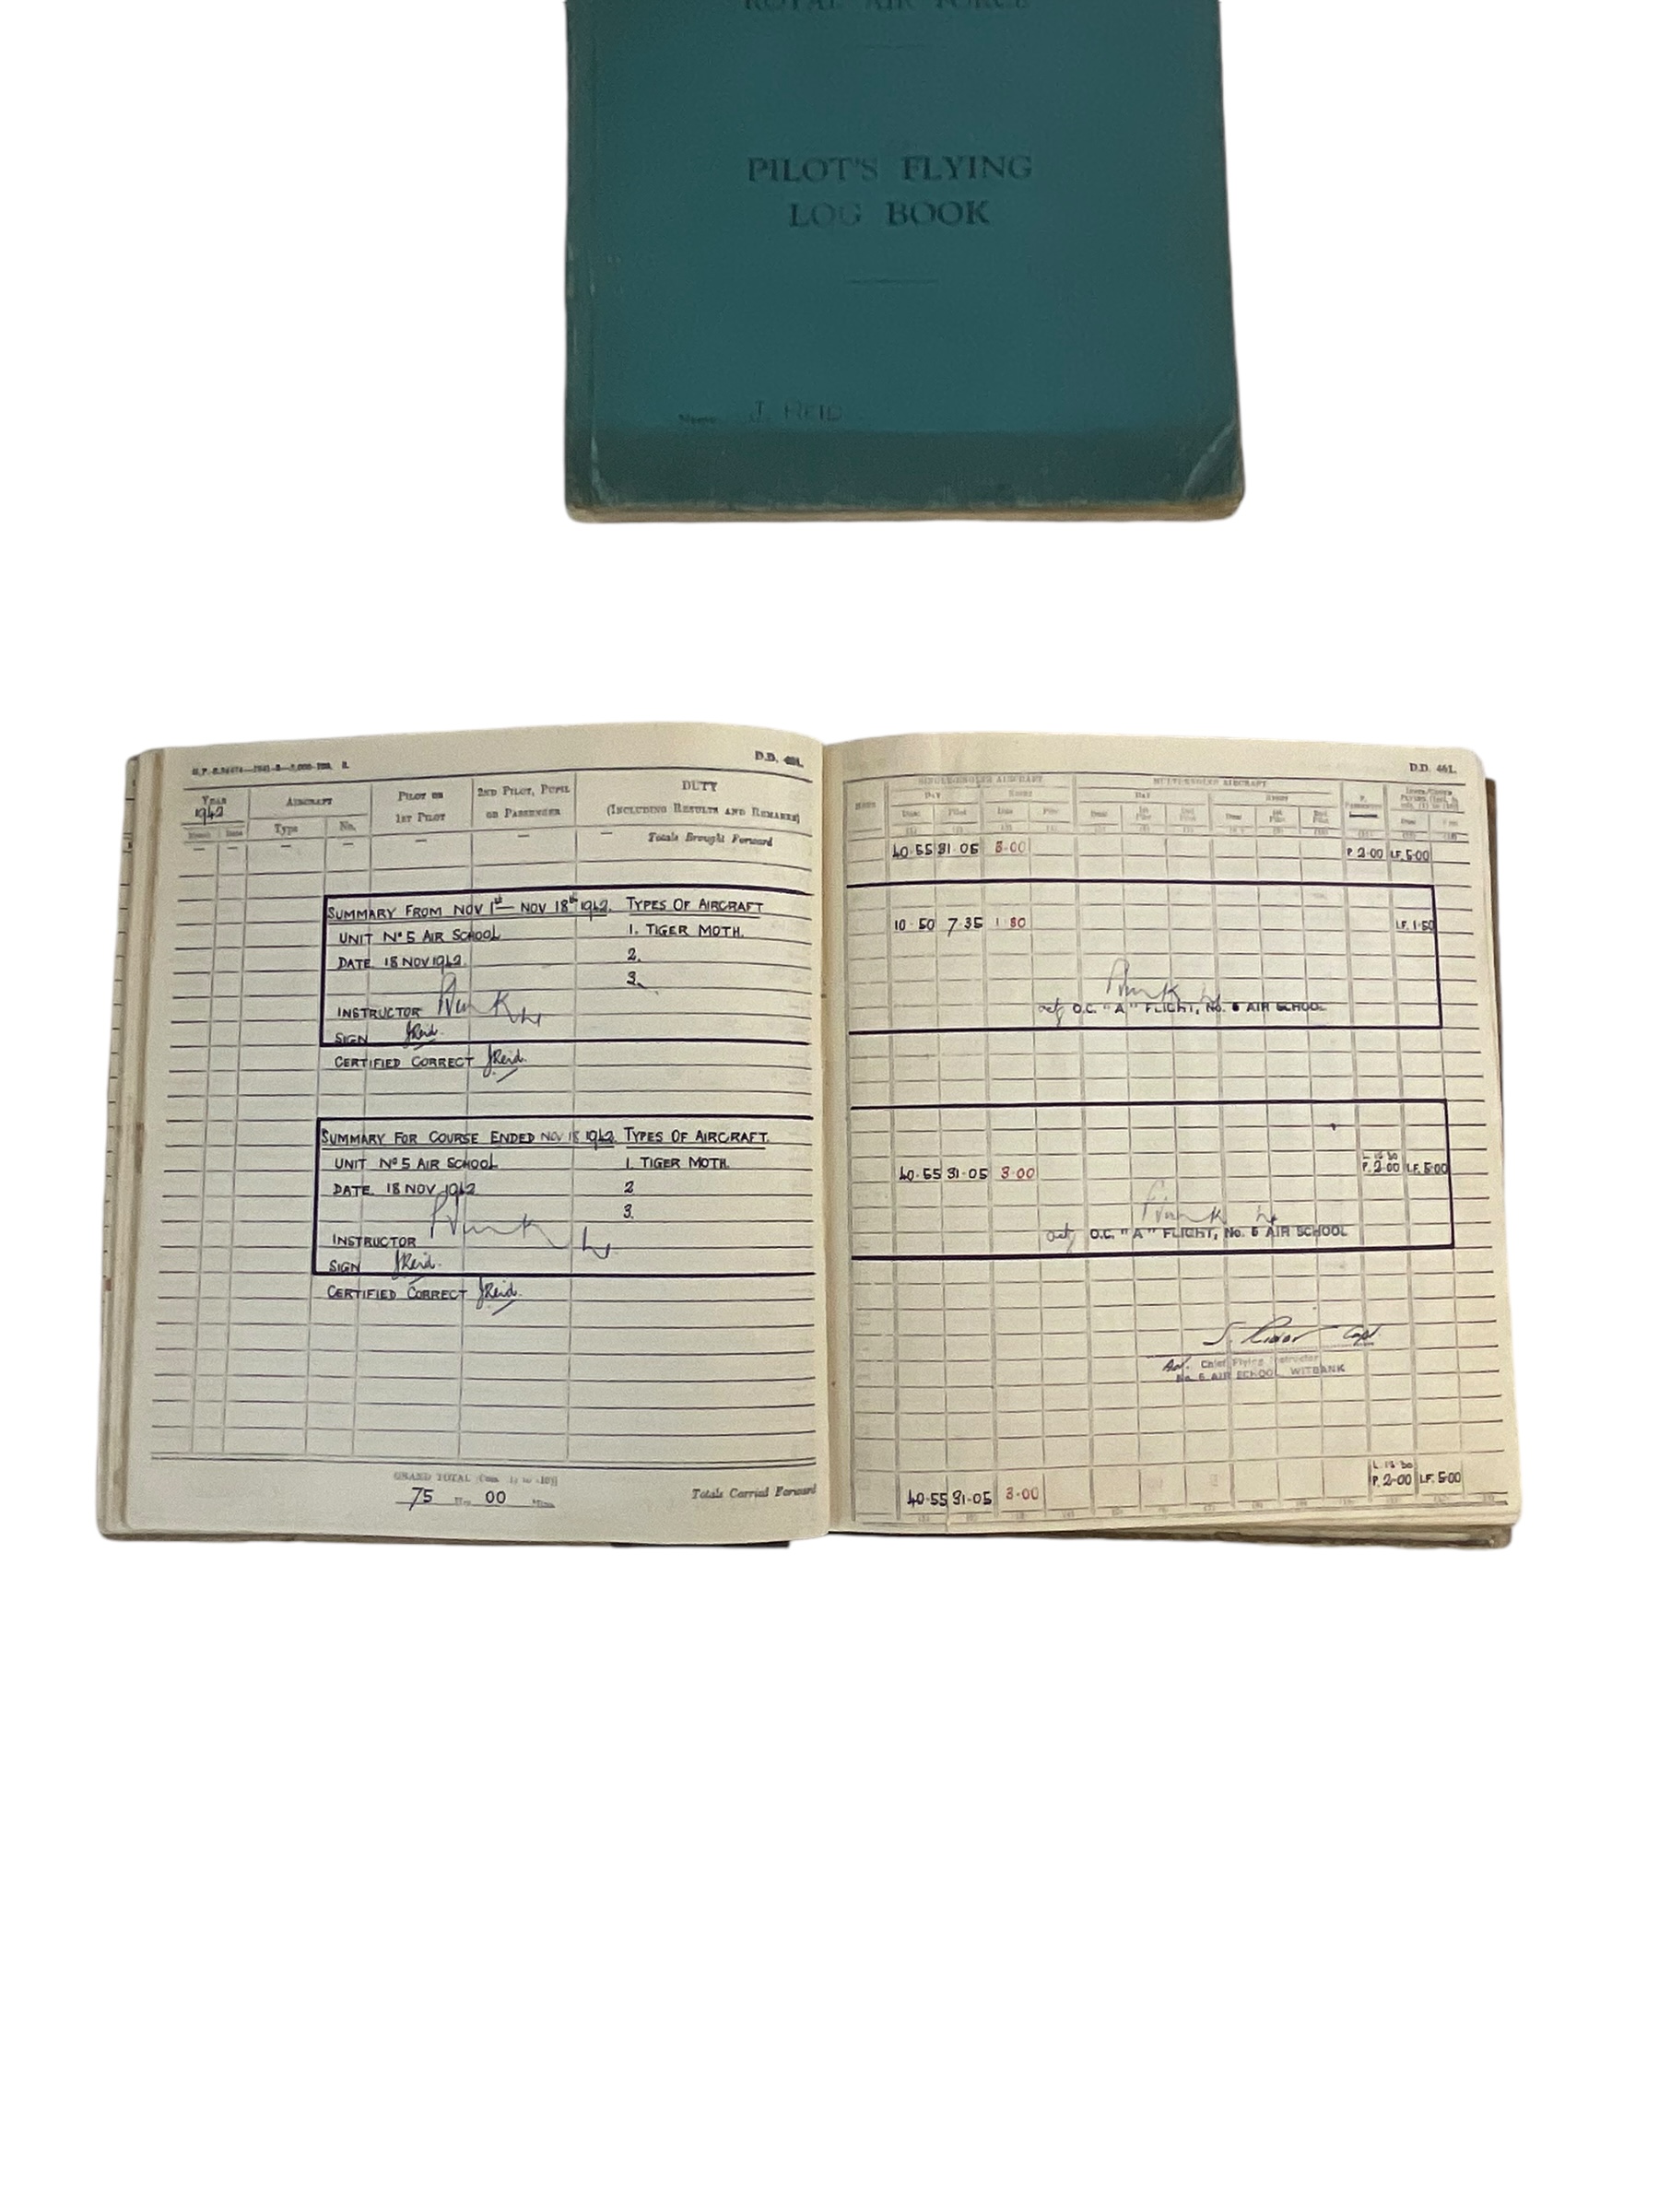 ROYAL AIR FORCE
PILOT'S FLYING
LOG BOOK
Name J. REID
D.D. 461.
YEAR
1942
AIRCRAFT
PILOT OR
1ST PILOT
2ND PILOT, PUPIL
OR PASSENGER
DUTY
(INCLUDING RESULTS AND REMARKS)
Month Date Type No.
— — — — — — — Totals Brought Forward
SUMMARY FROM NOV 1st — NOV 18th 1942. TYPES OF AIRCRAFT
UNIT No 5 AIR SCHOOL 1. TIGER MOTH.
DATE 18 NOV 1942. 2.
3.
INSTRUCTOR
SIGN JReid.
CERTIFIED CORRECT JReid.
SUMMARY FOR COURSE ENDED NOV 18 1942. TYPES OF AIRCRAFT.
UNIT No 5 AIR SCHOOL 1. TIGER MOTH.
DATE 18 NOV 1942 2
3.
INSTRUCTOR
SIGN JReid.
CERTIFIED CORRECT JReid.
GRAND TOTAL
75 Hrs. 00 Mins. Totals Carried Forward
D.D. 461.
SINGLE-ENGINE AIRCRAFT MULTI-ENGINE AIRCRAFT
DAY NIGHT DAY NIGHT PASSENGER
40·55 31·05 3·00 P. 2·00 I.F. 5·00
10·50 7·35 1·30 I.F. 1·50
O.C. "A" FLIGHT, No. 5 AIR SCHOOL
40·55 31·05 3·00 P. 2·00 I.F. 5·00
O.C. "A" FLIGHT, No. 5 AIR SCHOOL
Capt
Chief Flying Instructor
No. 5 AIR SCHOOL WITBANK
40·55 31·05 3·00 P. 2·00 I.F. 5·00